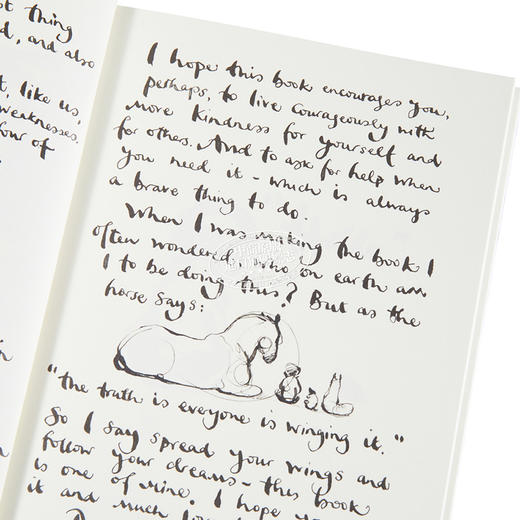 ot thing
d, and also
t, like us,
weaknesses.
four of
I hope this book encourages you,
perhaps, to live courageously with
more kindness for yourself and
for others. And to ask for help when
you need it - which is always
a brave thing to do.
When I was making the book I
often wondered, who on earth am
I to be doing this? But as the
horse says:
"the truth is everyone is winging it."
So I say spread your wings and
follow your dreams - this book
is one of mine. I hope yo
it and much lov